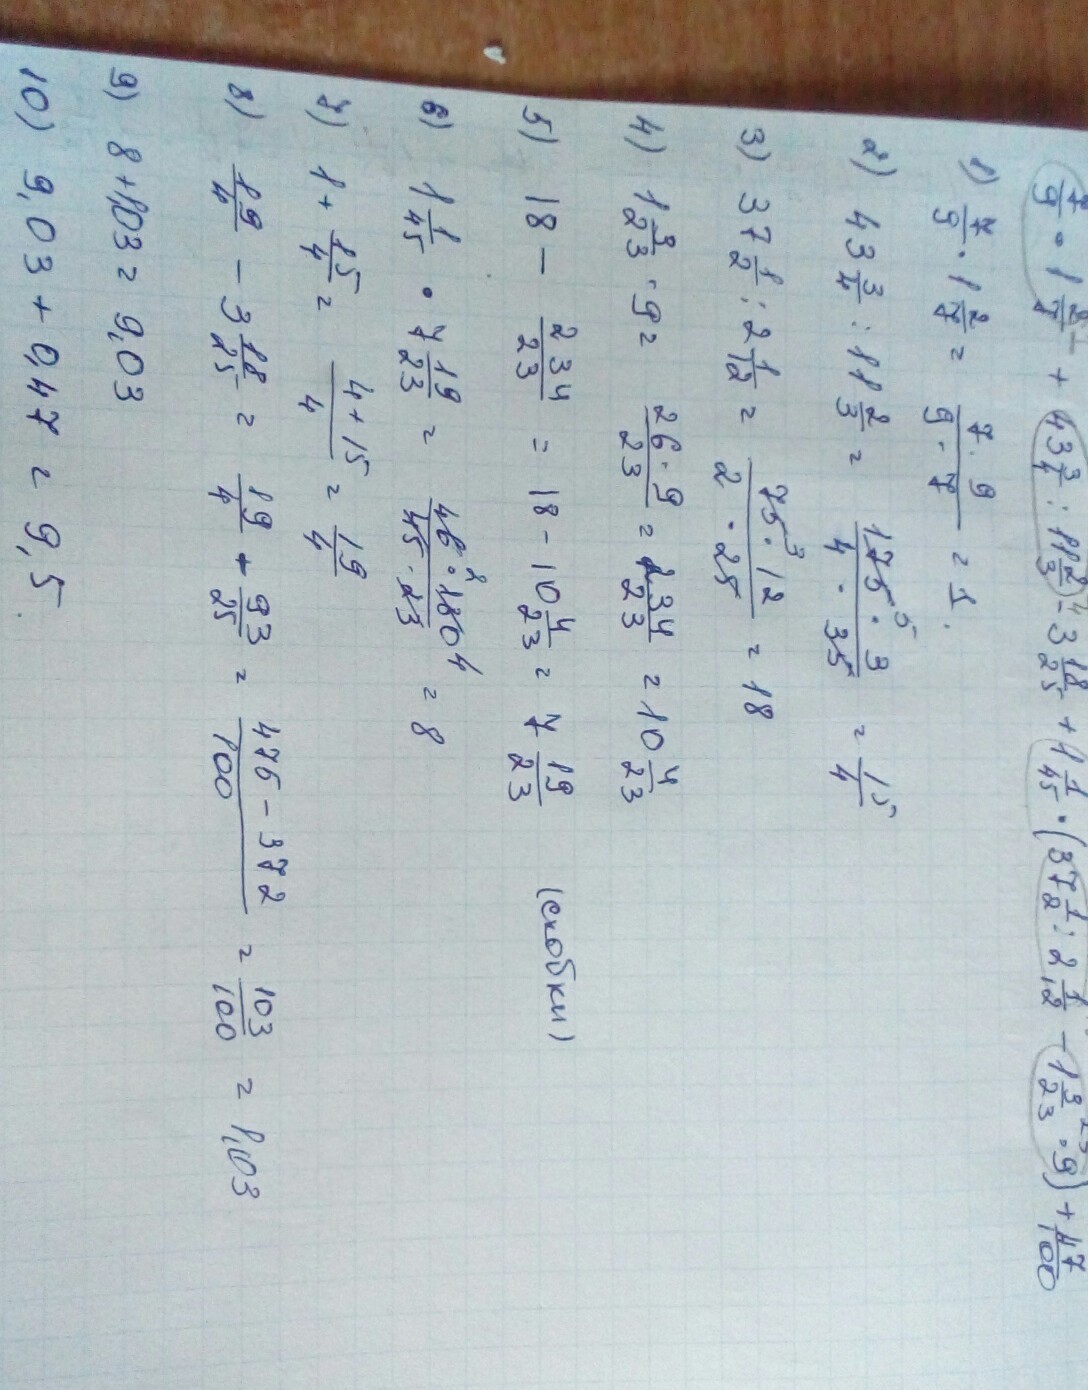 7/9 · 1 2/7 + 43 3/4 : 11 2/3 - 3 18/25 + 1 1/45 · (37 1/2 : 2 1/12 - 1 3/23 · 9) + 47/100
1) 7/9 · 1 2/7 = 7·9/9·7 = 1.
2) 43 3/4 : 11 2/3 = 175⁵·3/4·35 = 15/4
3) 37 1/2 : 2 1/12 = 75³·12/2·25 = 18
4) 1 3/23 · 9 = 26·9/23 = 234/23 = 10 4/23
5) 18 - 234/23 = 18 - 10 4/23 = 7 19/23 (скобки)
6) 1 1/45 · 7 19/23 = 46²·180⁴/45·23 = 8
7) 1 + 15/4 = 4+15/4 = 19/4
8) 19/4 - 3 18/25 = 19/4 - 93/25 = 475-372/100 = 103/100 = 1,03
9) 8+1,03 = 9,03
10) 9,03 + 0,47 = 9,5